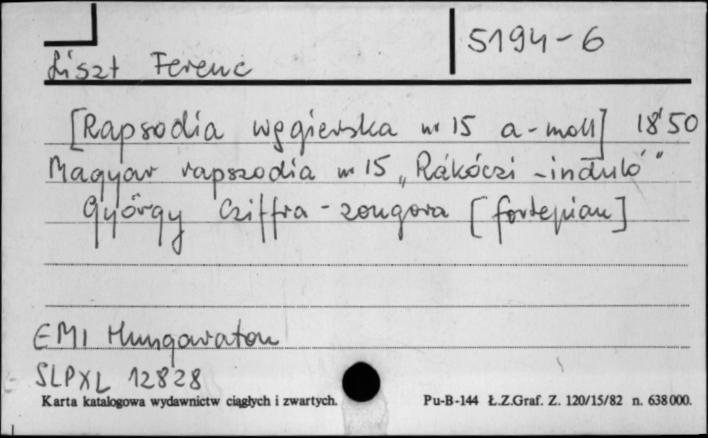 5194-6
Liszt Ferenc
[Rapsodia węgierska nr 15 a-moll] 18'50
Magyar rapszodia nr 15 „Rákóczi-induló"
György Cziffra - zongora [fortepian]
EMI Hungaroton
SLPXL 12828
Karta katalogowa wydawnictw ciągłych i zwartych. Pu-B-144 Ł.Z.Graf. Z. 120/15/82 n. 638000.